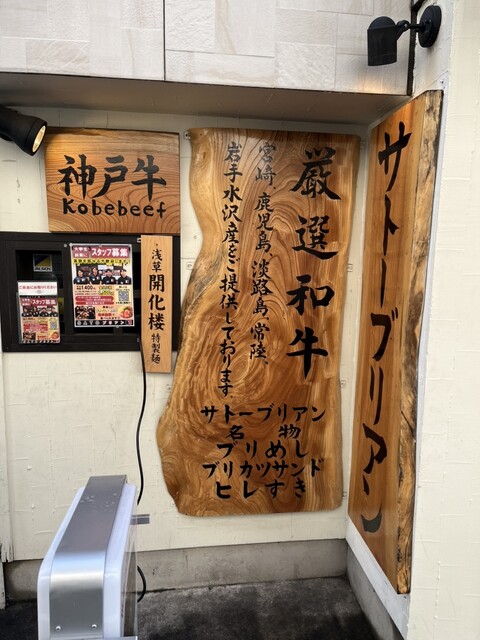 神戸牛
Kobebeef
スタッフ募集
浅草開化楼特製麺
厳選和牛
宮崎、鹿児島、淡路島、常陸、
岩手水沢産をご提供しております
サトーブリアン
名物
ブリめし
ブリカツサンド
ヒレすき
サトーブリアン